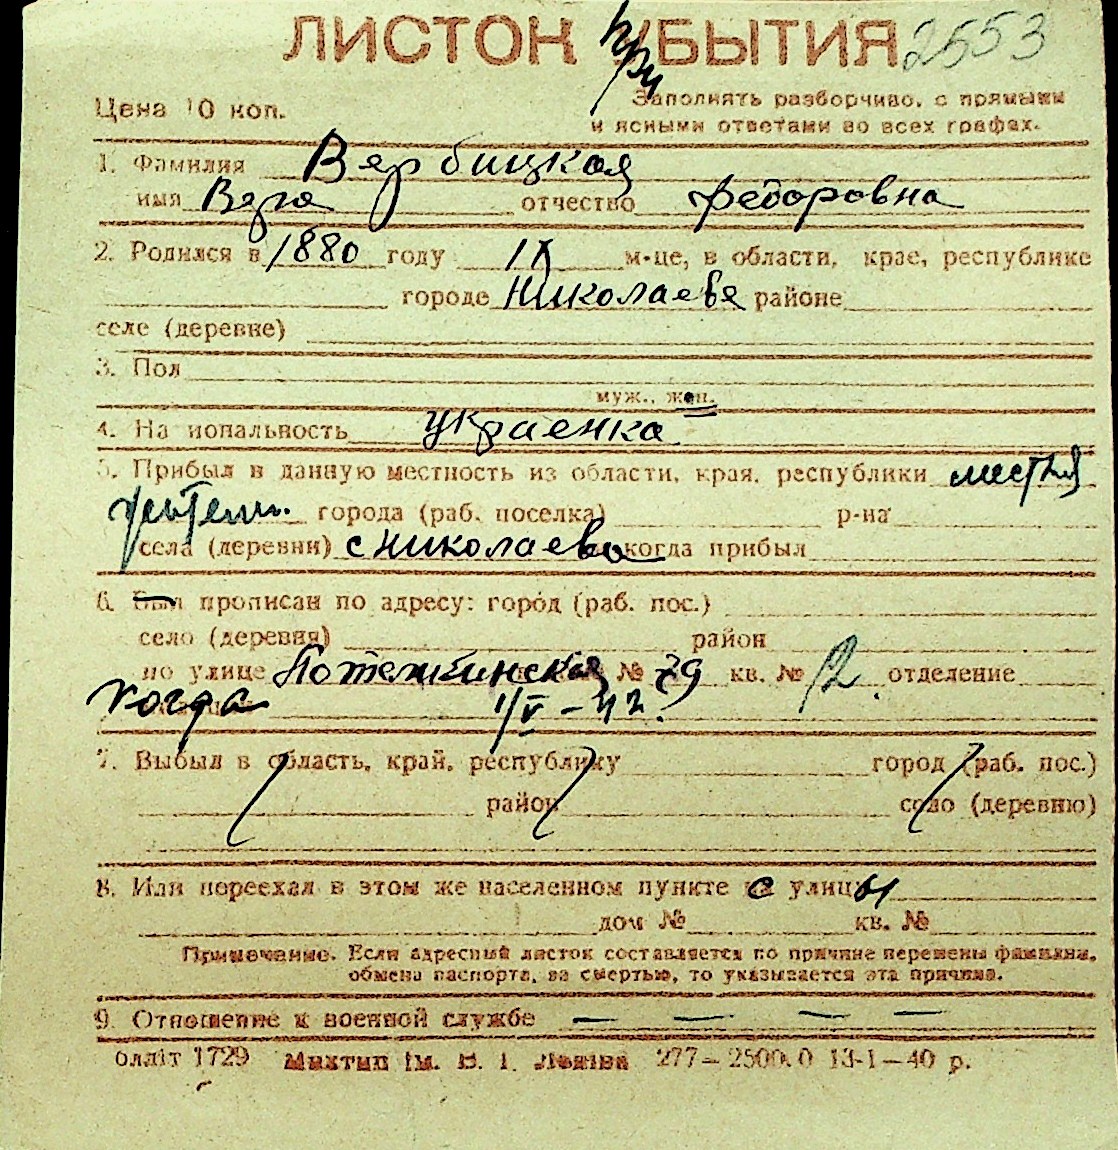 ЛИСТОК УБЫТИЯ 2553
при
Цена 10 коп.
Заполнять разборчиво, с прямыми
и ясными ответами во всех графах.
1. Фамилия Вербицкая
имя Вера отчество Федоровна
2. Родился в 1880 году IX м-це, в области, крае, республике
городе Николаеве районе
селе (деревне)
3. Пол
муж., жен.
4. На иональность украенка
5. Прибыл в данную местность из области, края, республики местная
жители. города (раб. поселка) р-на
села (деревни) с Николаева когда прибыл
6. Был прописан по адресу: город (раб. пос.)
село (деревня) район
по улице Потемкинская № 79 кв. № 2 отделение
когда 1/V-42.
7. Выбыл в область, край, республику город (раб. пос.)
район село (деревню)
8. Или переехал в этом же населенном пункте с улицы
дом № кв. №
Примечание. Если адресный листок составляется по причине перемены фамилии,
обмена паспорта, за смертью, то указывается эта причина.
9. Отношение к военной службе — — — —
олліт 1729 Миктип ім. В. І. Леніна 277—2500.0 13-1—40 р.